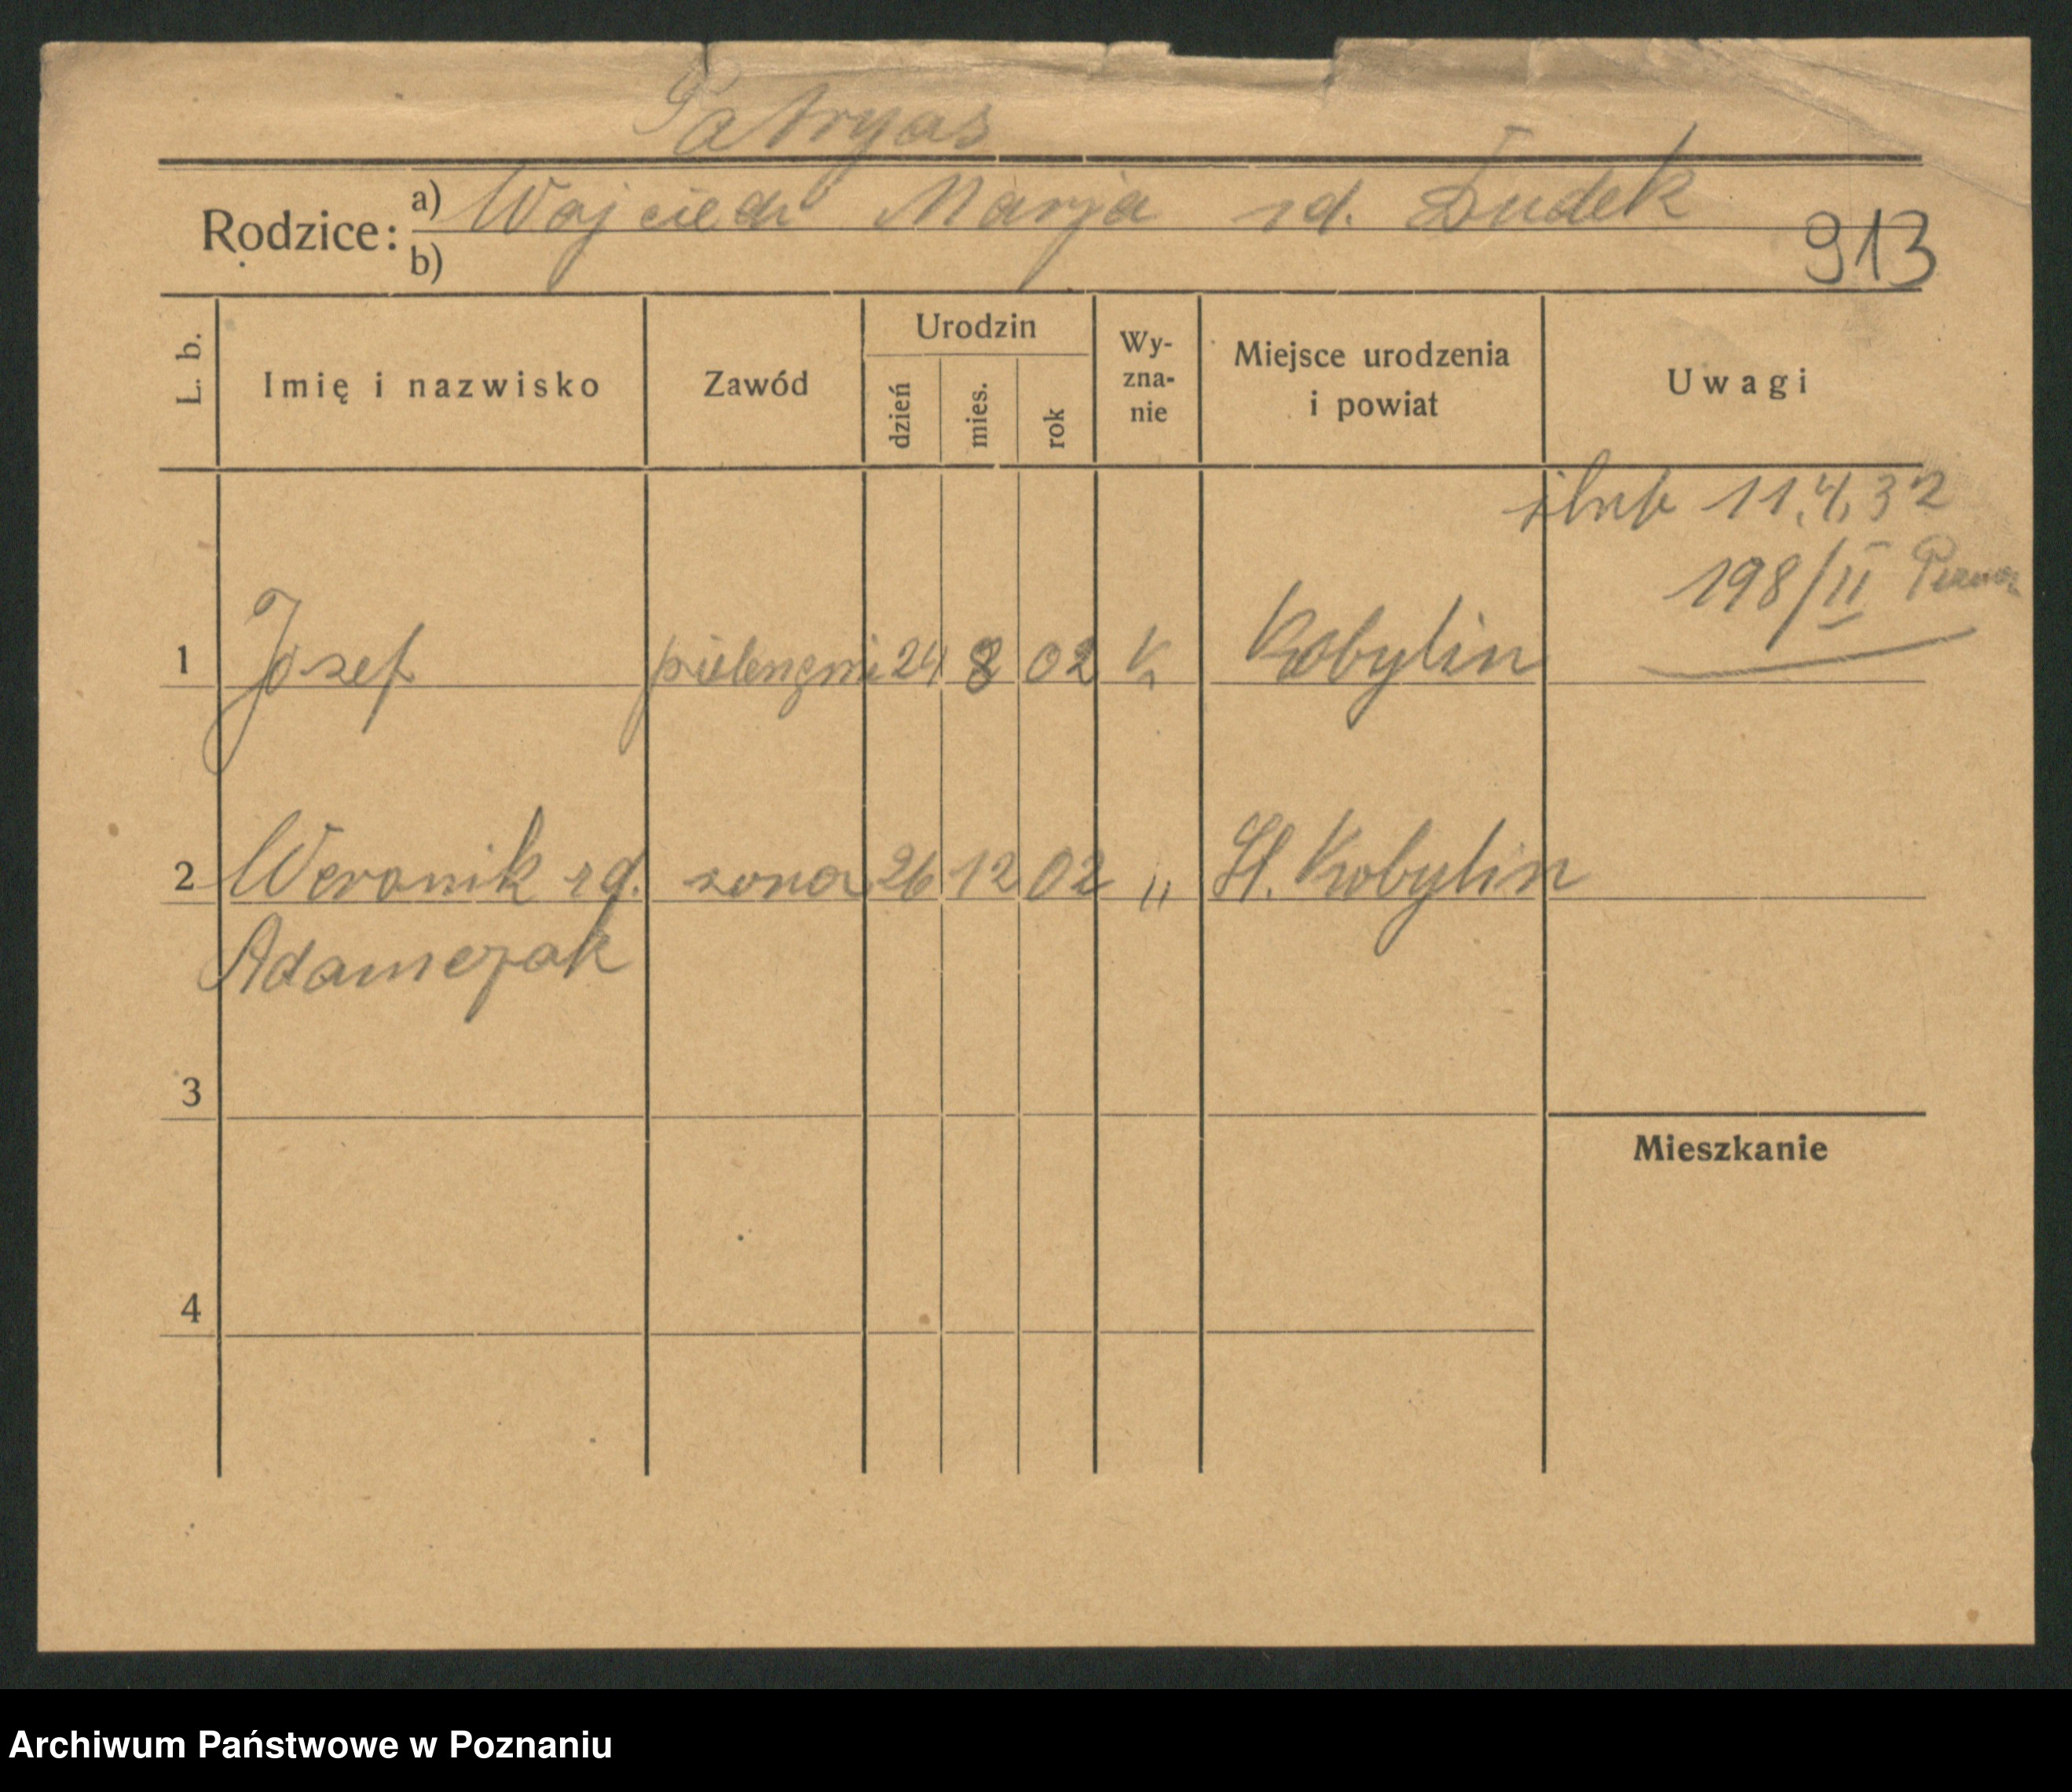 Patryas
Rodzice: a) Wojciech Marja rd. Dudek
b)
913
L. b. Imię i nazwisko Zawód Urodzin dzień mies. rok Wy-zna-nie Miejsce urodzenia i powiat Uwagi
ślub 11.4.32
198/II
1 Jozef 24 8 02 K Kobylin
2 Weronik rd. zona 26 12 02 " St. Kobylin
Adamczak
3
Mieszkanie
4
Archiwum Państwowe w Poznaniu